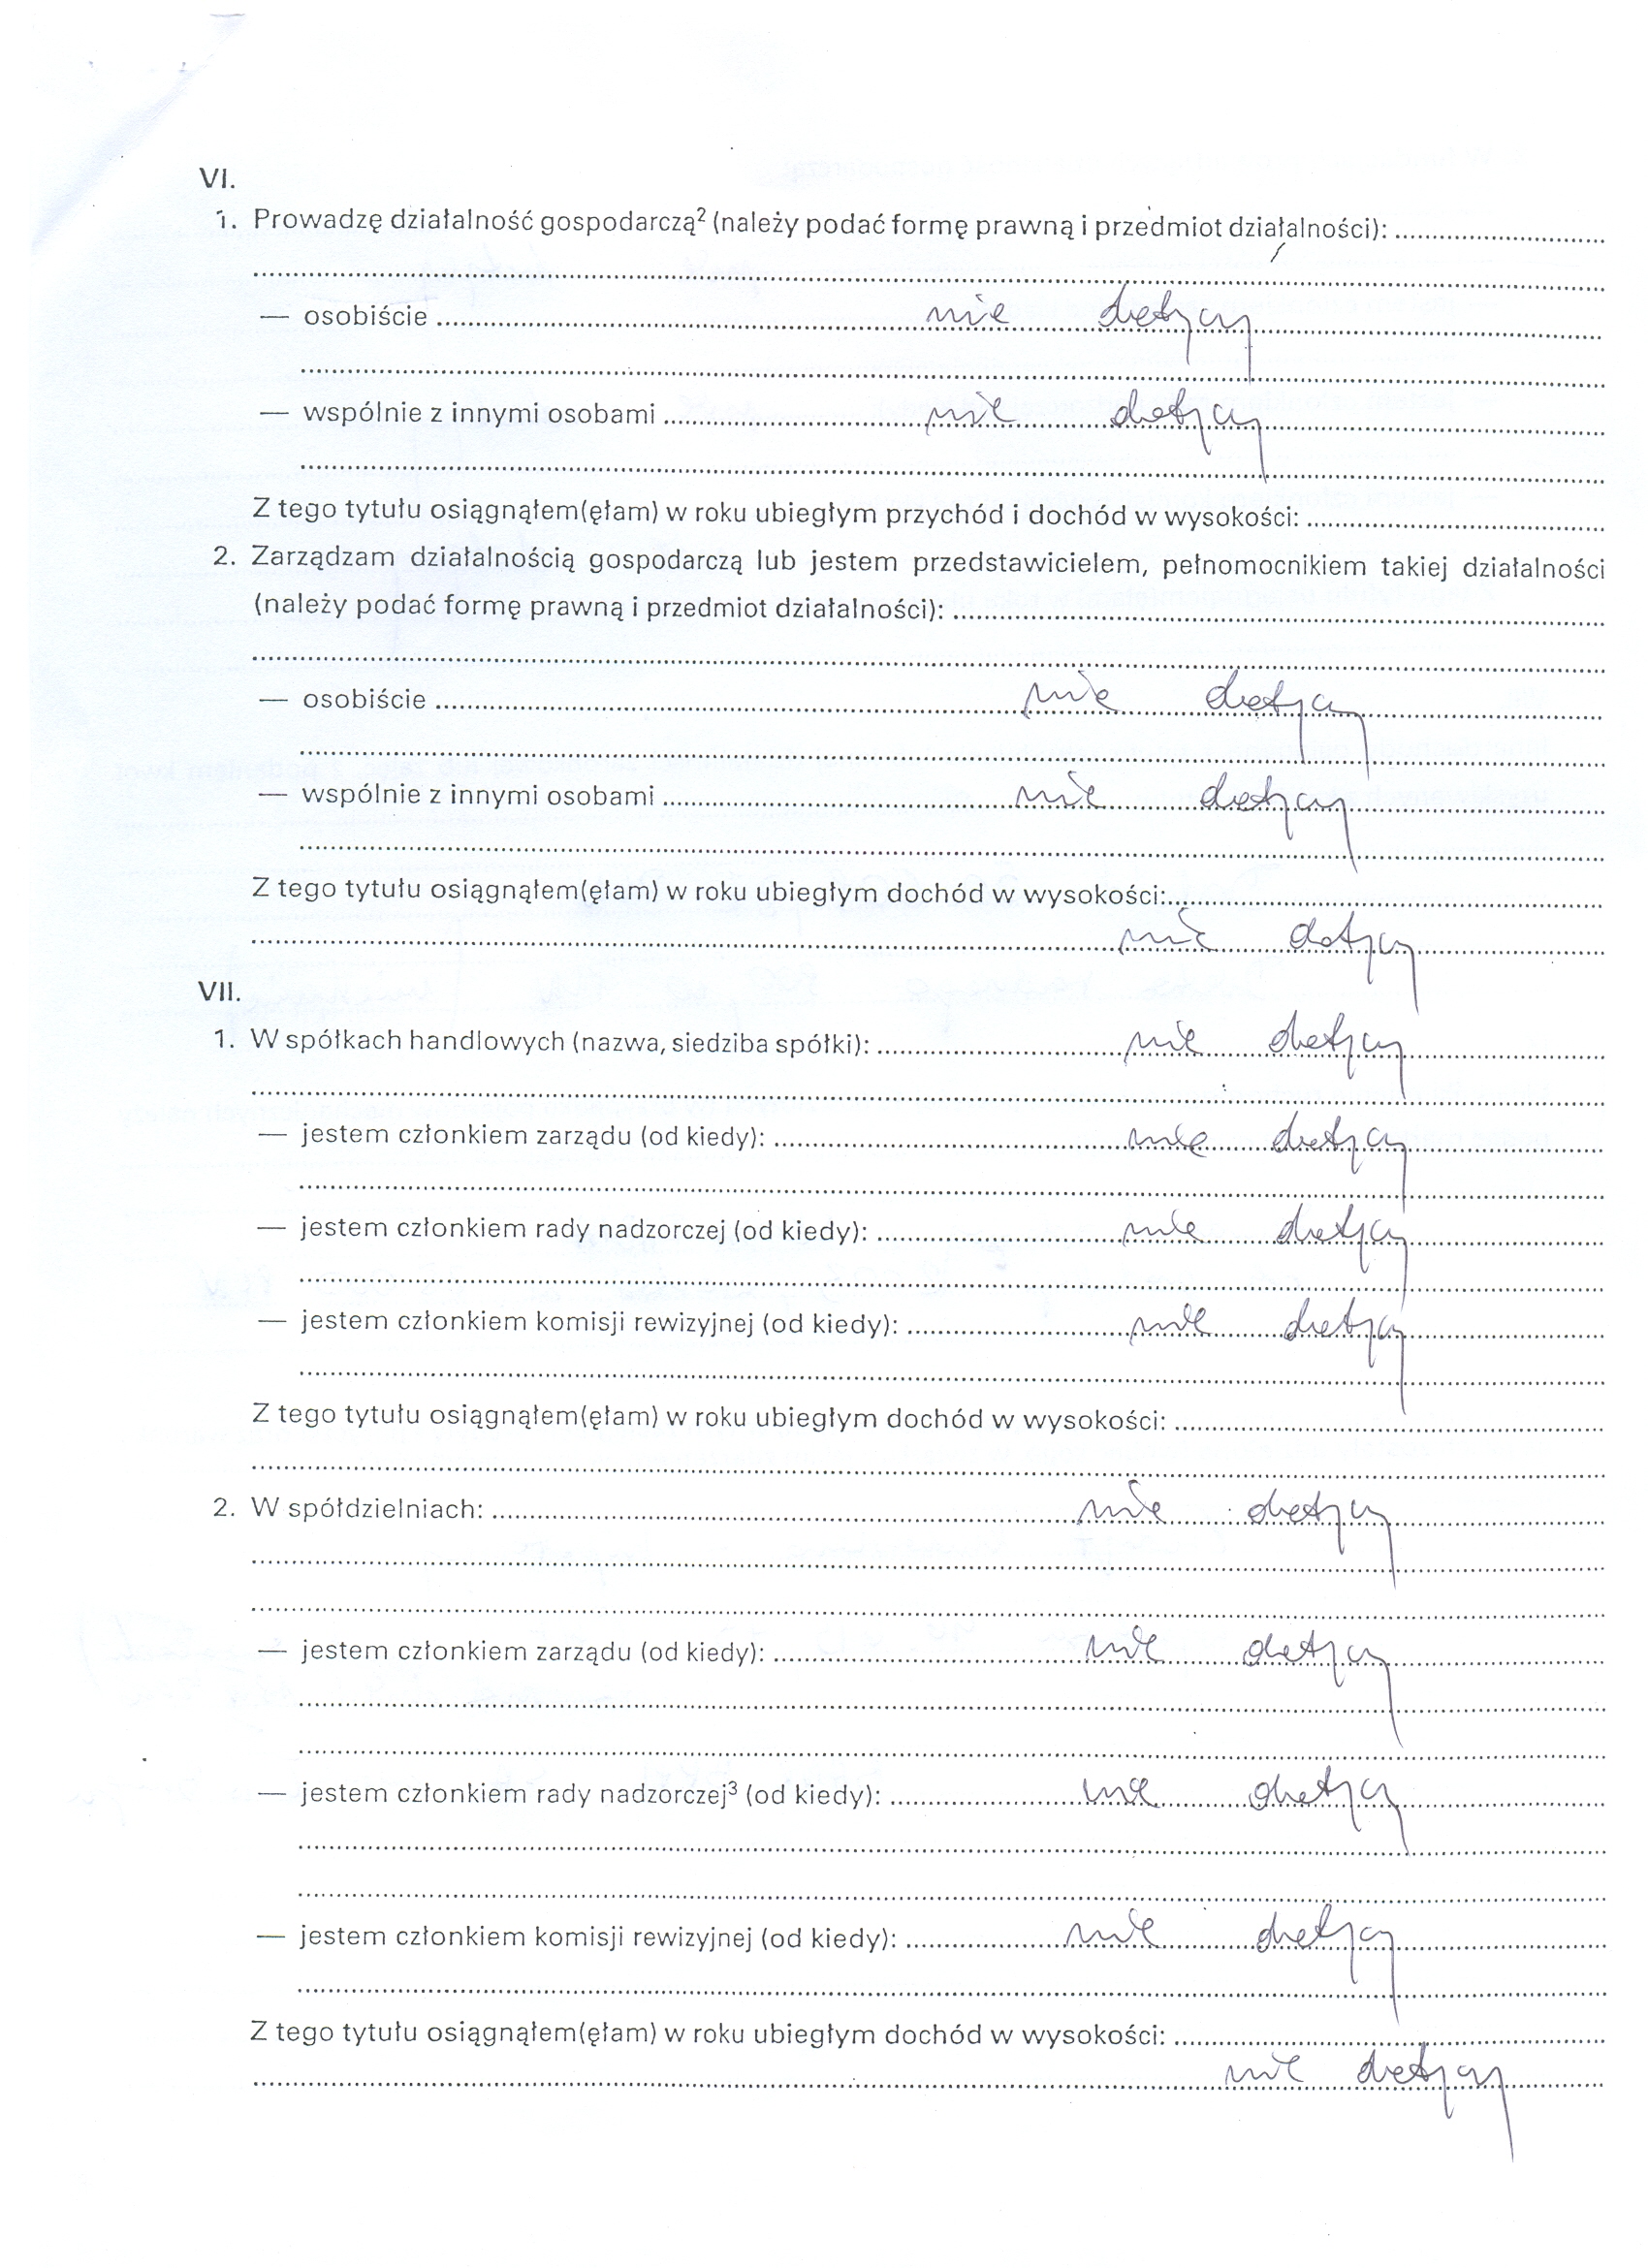 VI.
1. Prowadzę działalność gospodarczą² (należy podać formę prawną i przedmiot działalności):
— osobiście nie dotyczy
— wspólnie z innymi osobami nie dotyczy
Z tego tytułu osiągnąłem(ęłam) w roku ubiegłym przychód i dochód w wysokości:
2. Zarządzam działalnością gospodarczą lub jestem przedstawicielem, pełnomocnikiem takiej działalności
(należy podać formę prawną i przedmiot działalności):
— osobiście nie dotyczy
— wspólnie z innymi osobami nie dotyczy
Z tego tytułu osiągnąłem(ęłam) w roku ubiegłym dochód w wysokości:
nie dotyczy
VII.
1. W spółkach handlowych (nazwa, siedziba spółki): nie dotyczy
— jestem członkiem zarządu (od kiedy): nie dotyczy
— jestem członkiem rady nadzorczej (od kiedy): nie dotyczy
— jestem członkiem komisji rewizyjnej (od kiedy): nie dotyczy
Z tego tytułu osiągnąłem(ęłam) w roku ubiegłym dochód w wysokości:
2. W spółdzielniach: nie dotyczy
— jestem członkiem zarządu (od kiedy): nie dotyczy
— jestem członkiem rady nadzorczej³ (od kiedy): nie dotyczy
— jestem członkiem komisji rewizyjnej (od kiedy): nie dotyczy
Z tego tytułu osiągnąłem(ęłam) w roku ubiegłym dochód w wysokości:
nie dotyczy